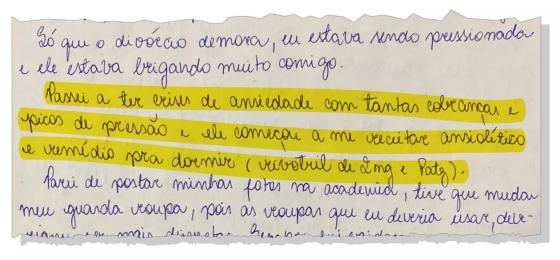 Só que o divórcio demora, eu estava sendo pressionada
e ele estava brigando muito comigo.
Passei a ter crises de ansiedade com tantas cobranças e
picos de pressão e ele começou a me receitar ansiolítico
e remédio pra dormir (rivotril de 2mg e Patz).
Parei de postar minhas fotos na academia, tive que mudar
meu guarda roupa, pois as roupas que eu deveria usar, deve-